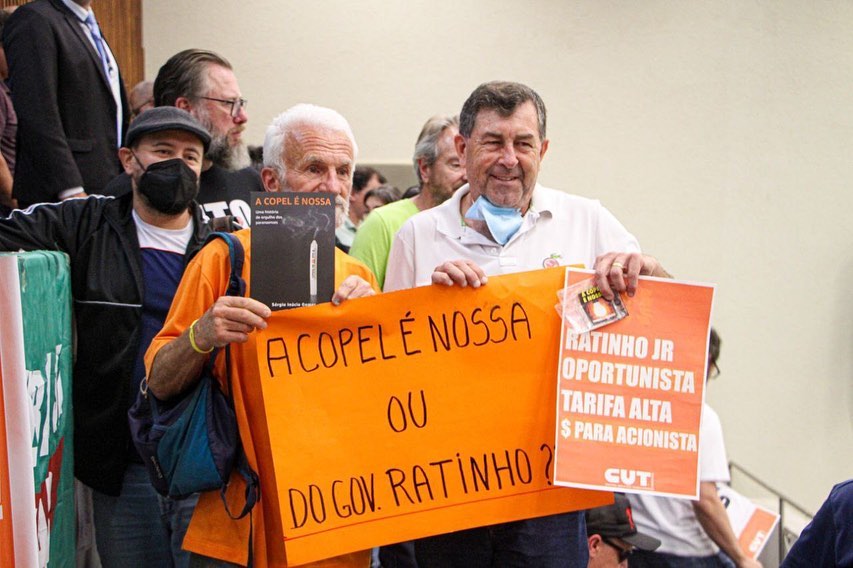 A COPEL É NOSSA
Uma história
do orgulho dos
paranaenses
Sérgio Inácio
A COPEL É NOSSA
OU
DO GOV. RATINHO?
A COPEL
É NOSSA
RATINHO JR
OPORTUNISTA
TARIFA ALTA
$ PARA ACIONISTA
CUT
TO
CUT